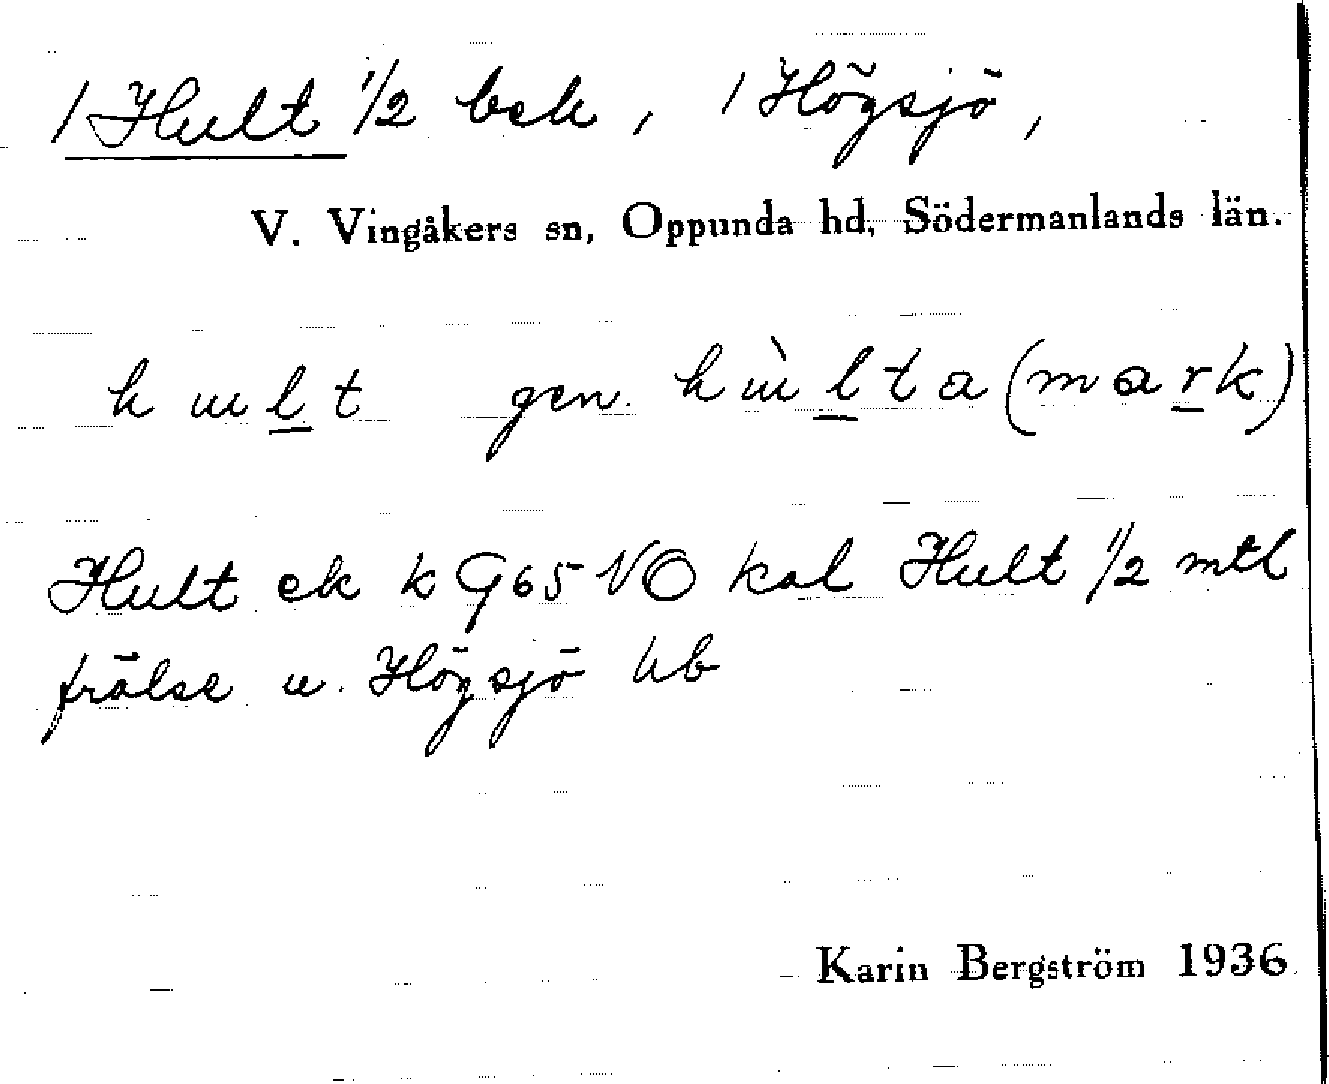 / Hult 1/2 bek, / Högsjö,
V. Vingåkers sn, Oppunda hd, Södermanlands län.
h ɯ l t gen. h ɯ̀ l t a (m a r k)
Hult ek k G65 NO kal Hult 1/2 mtl
frälse u. Högsjö hb
Karin Bergström 1936